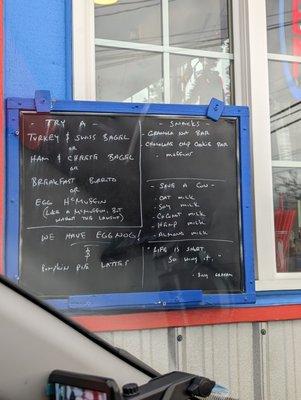 - TRY A -
TURKEY & SWISS BAGEL
OR
HAM & CHEESE BAGEL
OR
BREAKFAST BURRITO
OR
EGG McMUFFIN
(LIKE A McMUFFIN, BUT
WE HAVE EGGNOG
&
PUMPKIN PIE LATTES
- SNACKS -
GRANOLA NUT BAR
CHOCOLATE CHIP COOKIE BAR
- MUFFINS
- SAVE A COW -
- OAT MILK
- SOY MILK
- COCONUT MILK
- HEMP MILK
- ALMOND MILK
"LIFE IS SHORT
SO WING IT."